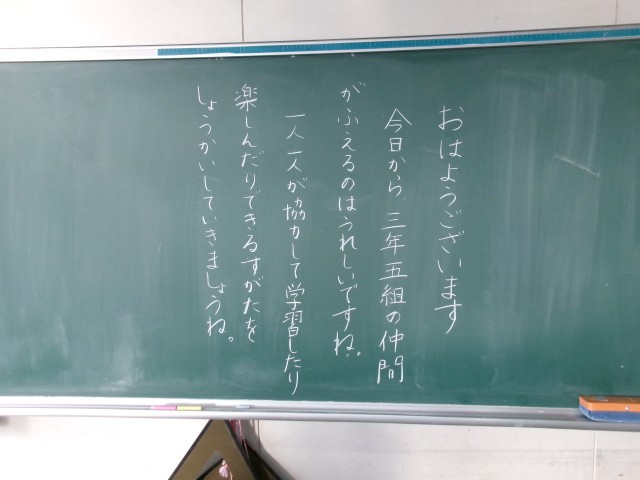 おはようございます
今日から、三年五組の仲間
がふえるのはうれしいですね。
一人一人が協力して学習したり
楽しんだりできるすがたを
しょうかいしていきましょうね。